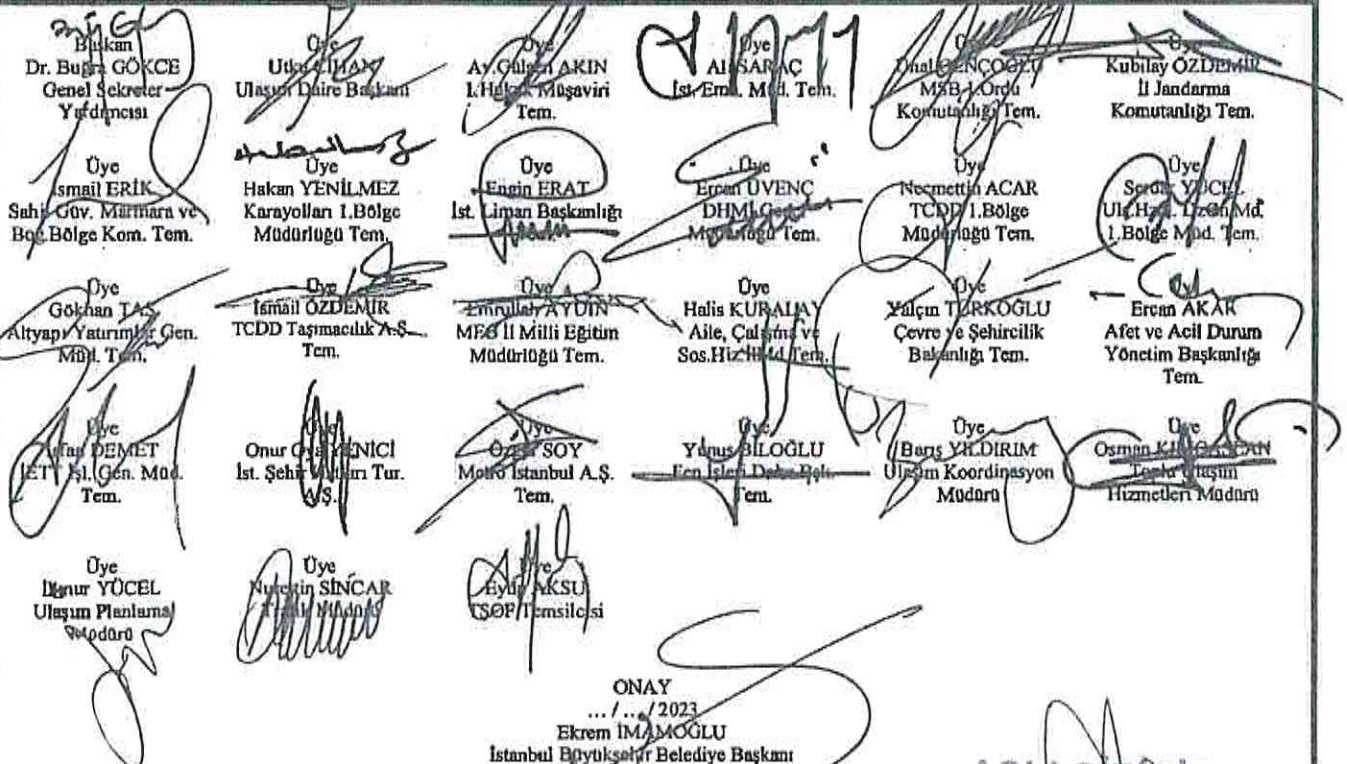 Başkan
Dr. Buğra GÖKCE
Genel Sekreter
Yardımcısı
Üye
Utku CİHAN
Ulaşım Daire Başkanı
Üye
Av. Gülşen AKIN
1.Hukuk Müşaviri
Tem.
Üye
Ali SARAÇ
İst. Emn. Müd. Tem.
Üye
GENÇOĞLU
MSB 1.Ordu
Komutanlığı Tem.
Üye
Kubilay ÖZDEMİR
İl Jandarma
Komutanlığı Tem.
Üye
İsmail ERİK
Sahil Güv. Marmara ve
Boğ.Bölge Kom. Tem.
Üye
Hakan YENİLMEZ
Karayolları 1.Bölge
Müdürlüğü Tem.
Üye
Engin ERAT
İst. Liman Başkanlığı
Üye
Ercan ÜVENÇ
DHMİ
Müdürlüğü Tem.
Üye
Necmettin ACAR
TCDD 1.Bölge
Müdürlüğü Tem.
Üye
Serdar YÜCEL
1.Bölge Müd. Tem.
Üye
Gökhan TAŞ
Altyapı Yatırımlar Gen.
Müd. Tem.
Üye
İsmail ÖZDEMİR
TCDD Taşımacılık A.Ş.
Tem.
Üye
Emrullah AYDIN
MEB İl Milli Eğitim
Müdürlüğü Tem.
Üye
Halis KURALAY
Aile, Çalışma ve
Sos.Hiz.İl Md.Tem.
Üye
Yalçın TÜRKOĞLU
Çevre ve Şehircilik
Bakanlığı Tem.
Ercan AKAR
Afet ve Acil Durum
Yönetim Başkanlığı
Tem.
Üye
DEMET
İETT İşl. Gen. Müd.
Tem.
Üye
Onur YENİCİ
İst. Şehir Hatları Tur.
A.Ş.
Üye
Özgür SOY
Metro İstanbul A.Ş.
Tem.
Üye
Yunus BİLOĞLU
Fen İşleri Daire Bşk.
Tem.
Üye
Barış YILDIRIM
Ulaşım Koordinasyon
Müdürü
Üye
Osman
Toplu Ulaşım
Hizmetleri Müdürü
Üye
YÜCEL
Ulaşım Planlama
Müdürü
Üye
Nurettin SİNCAR
Trafik Müdürü
Üye
Eyüp AKSU
TSOF Temsilcisi
ONAY
... / ... / 2023
Ekrem İMAMOĞLU
İstanbul Büyükşehir Belediye Başkanı